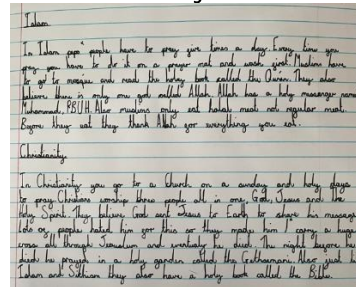 Islam
In Islam people have to pray five times a day. Every time you
pray you have to do it on a prayer mat and wash first. Muslims have
to go to mosque and read the holy book called the Quran. They also
believe there is only one god called Allah. Allah has a holy messenger name
Muhammad, PBUH. Also muslims only eat halal meat not regular meat.
Before they eat they thank Allah for everything you eat.
Christianity
In Christianity you go to a Church on a sunday and holy days
to pray. Christians worship three people all in one, God, Jesus and the
Holy Spirit. They believe God sent Jesus to Earth to share his message
of people hated him for this so they made him carry a huge
cross all through Jerusalem and eventually he died. The night before he
died he prayed in a holy garden called the Gethsemani. Also just l
Islam and Sikhism they also have a holy book called the Bible.